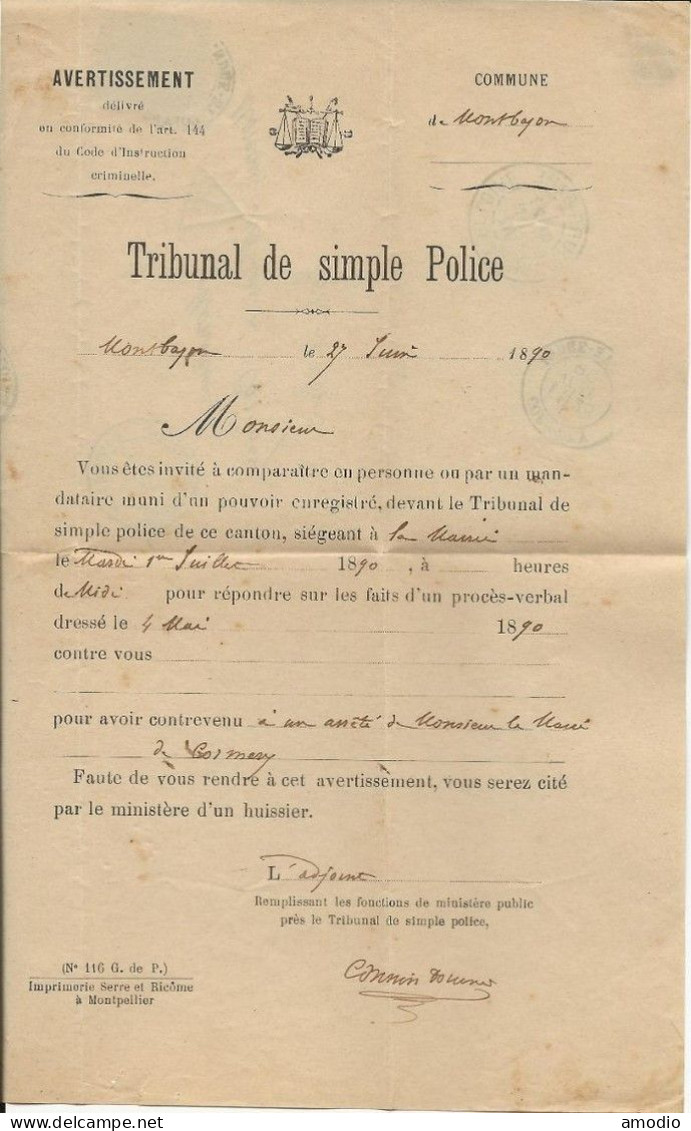 AVERTISSEMENT
délivré
en conformité de l'art. 144
du Code d'Instruction
criminelle.
COMMUNE
de Montbazon
Tribunal de simple Police
Montbazon le 27 Juin 1890
Monsieur
Vous êtes invité à comparaître en personne ou par un man-
dataire muni d'un pouvoir enregistré, devant le Tribunal de
simple police de ce canton, siégeant à la Mairie
le Mardi 1er Juillet 1890, à heures
de Midi pour répondre sur les faits d'un procès-verbal
dressé le 4 Mai 1890
contre vous
pour avoir contrevenu à un arrêté de Monsieur le Maire
de Cormery
Faute de vous rendre à cet avertissement, vous serez cité
par le ministère d'un huissier.
L'adjoint
Remplissant les fonctions de ministère public
près le Tribunal de simple police,
(N° 116 G. de P.)
Imprimerie Serre et Ricôme
à Montpellier
delcampe.net
amodio